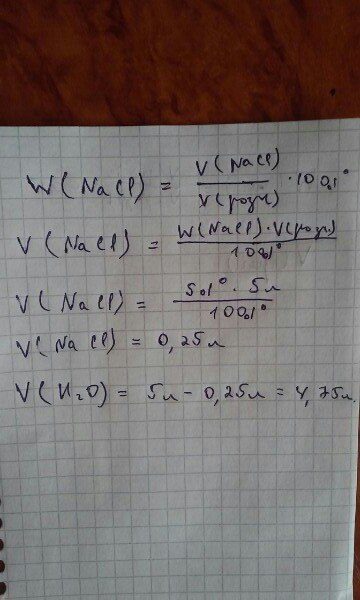 W(NaCl) = V(NaCl) / V(розч) · 100%
V(NaCl) = W(NaCl) · V(розч) / 100%
V(NaCl) = 5% · 5л / 100%
V(NaCl) = 0,25л
V(H₂O) = 5л - 0,25л = 4,75л.